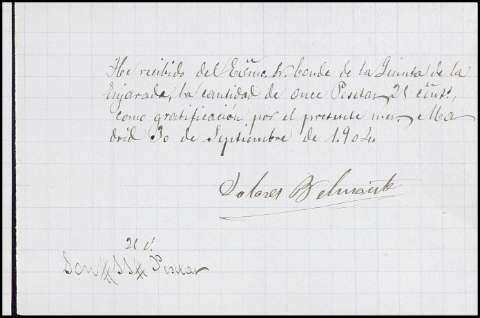 He recibido del Exmo. Sr. Conde de la Quinta de la
Enjarada, la cantidad de once Pesetas 21 cénts,
como gratificación por el presente mes. Ma
drid 30 de Septiembre de 1.904
Dolores Belmonte
21 c.
Son #11# Pesetas